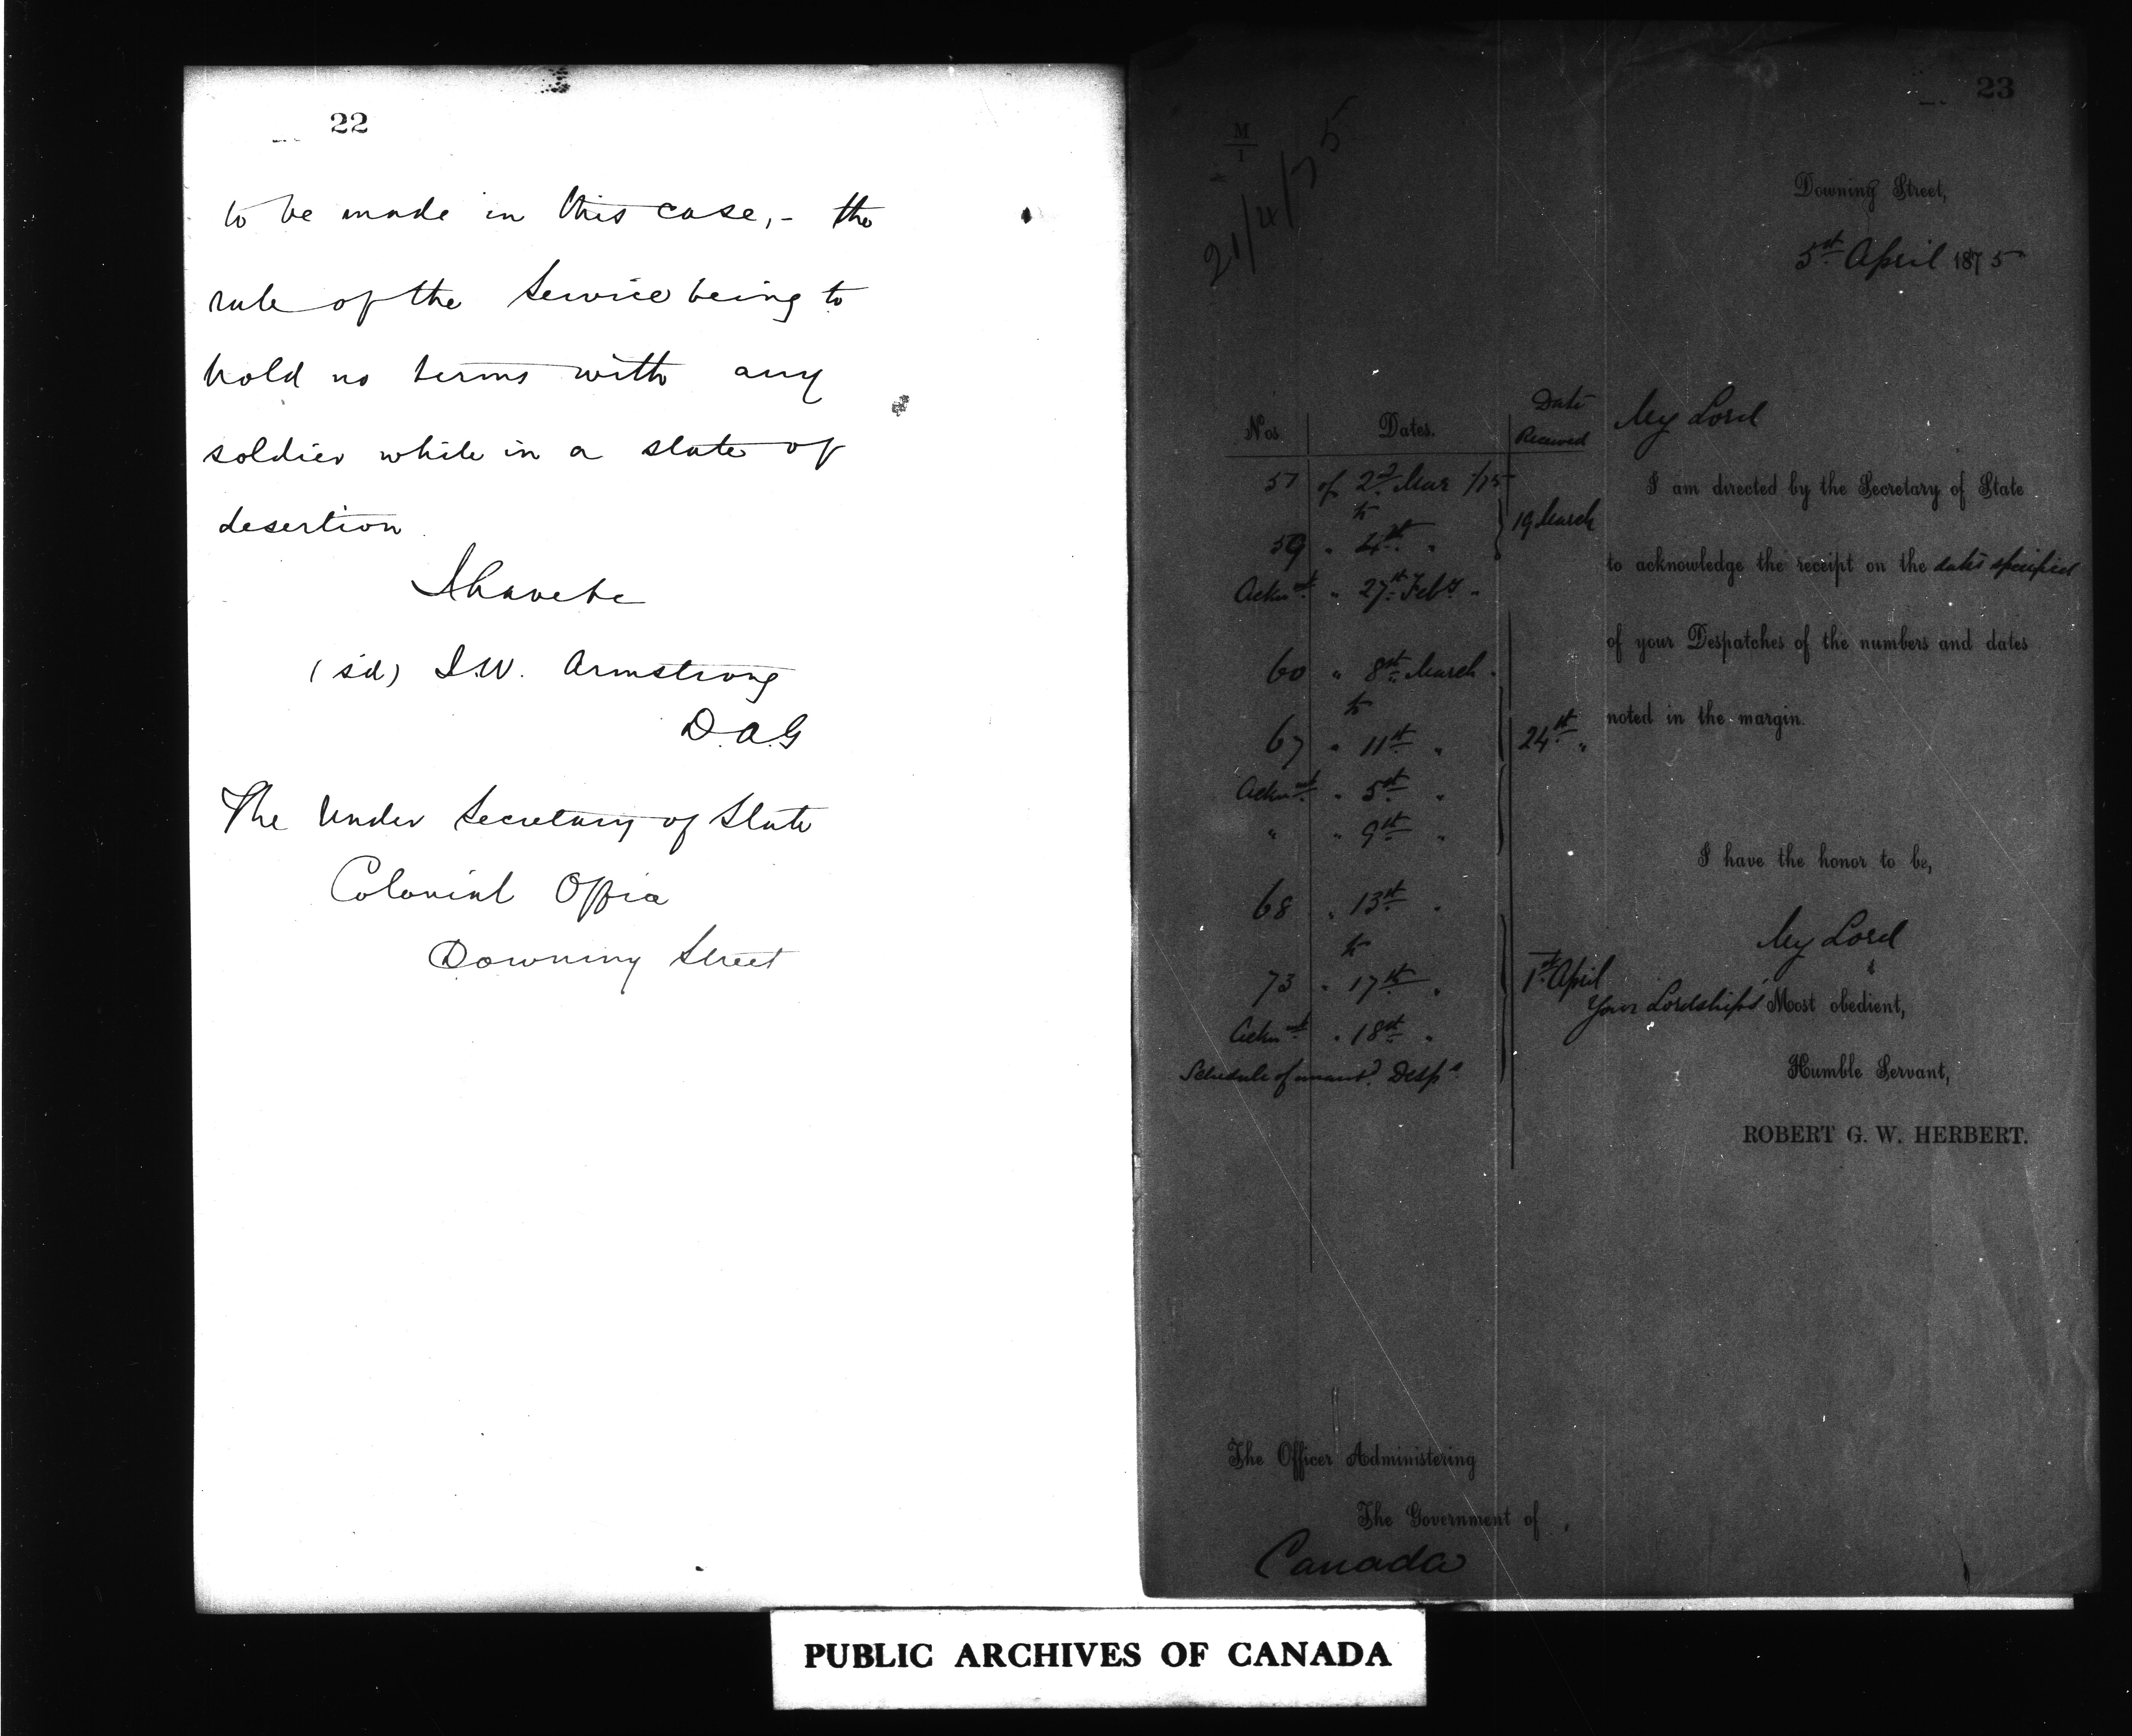 22
to be made in this case, - the
rule of the Service being to
hold no terms with any
soldier while in a state of
desertion
I have &c
(sd) J.W. Armstrong
D.A.G
The Under Secretary of State
Colonial Office
Downing Street
23
M
1
21/4/75
Downing Street,
5th April 1875
Nos. Dates. Date Received
57 of 2nd Mar /75
to
59 " 4th " 19 March
Acknt " 27th Feby "
60 " 8th March "
to
67 " 11th " 24th "
Acknt " 5th "
" " 9th "
68 " 13th "
to
73 " 17th " 1st April
Acknt " 18th "
Schedule of Desps
My Lord
I am directed by the Secretary of State
to acknowledge the receipt on the dates specified
of your Despatches of the numbers and dates
noted in the margin.
I have the honor to be,
My Lord
Your Lordship's Most obedient,
Humble Servant,
ROBERT G. W. HERBERT.
The Officer Administering
The Government of
Canada
PUBLIC ARCHIVES OF CANADA